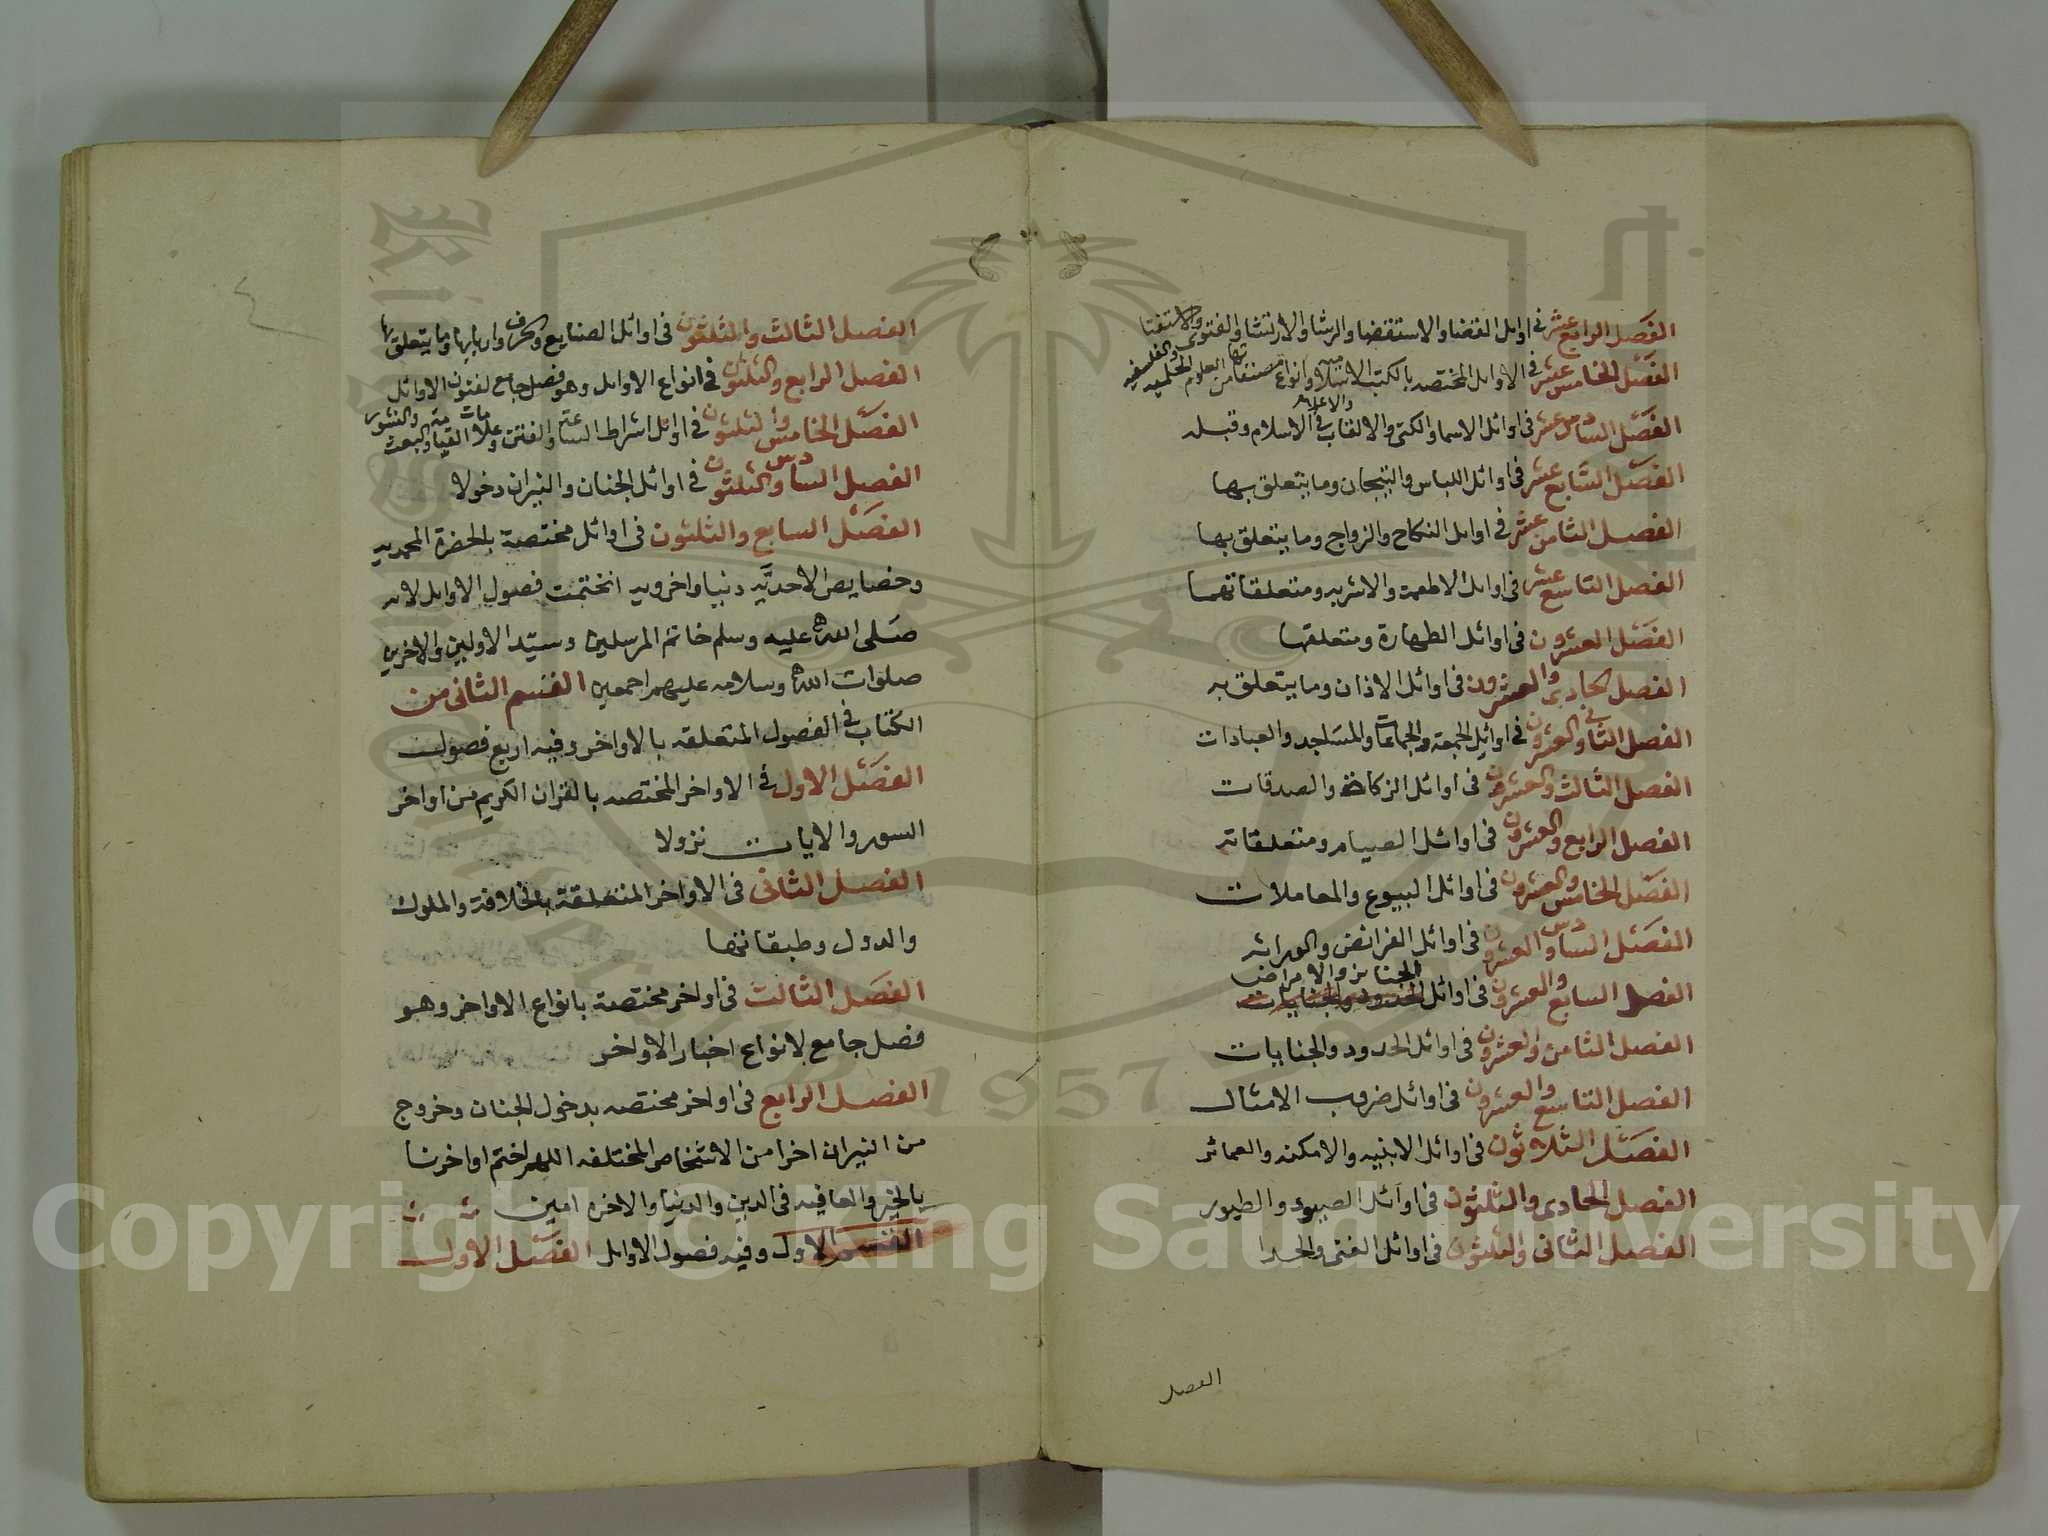 الفصل الرابع عشر فى اوايل القضا والاستقضا والرشا والارتشا والفتوى والاستفتا
الفصل الخامس عشر فى الاوايل المختصه بالكتب الاسلامية وانواع مصنفاتها من العلوم الحكميه والفلسفيه
الفصل السادس عشر فى اوائل الاسما والكنى والالقاب والاعلام فى الاسلام وقبله
الفصل السابع عشر فى اوائل اللباس والتيجان وما يتعلق بها
الفصل الثامن عشر فى اوايل النكاح والزواج وما يتعلق بها
الفصل التاسع عشر فى اوايل الاطعمة والاشربه ومتعلقاتهما
الفصل العشرون فى اوائل الطهارة ومتعلقها
الفصل الحادى والعشرون فى اوائل الاذان وما يتعلق به
الفصل الثانى والعشرون فى اوايل الجمعة والجماعات والمساجد والعبادات
الفصل الثالث والعشرون فى اوائل الزكاة والصدقات
الفصل الرابع والعشرون فى اوائل الصيام ومتعلقاته
الفصل الخامس والعشرون فى اوائل البيوع والمعاملات
الفصل السادس والعشرون فى اوائل الفرائض والوراثه
الفصل السابع والعشرون فى اوائل الجنايز والامراض
الفصل الثامن والعشرون فى اوائل الحدود والجنايات
الفصل التاسع والعشرون فى اوائل ضروب الامثال
الفصل الثلاثون فى اوائل الابنيه والامكنه والعمائر
الفصل الحادى والثلثون فى اوائل الصيود والطيور
الفصل الثانى والثلثون فى اوائل الغنى والحدا
الفصل
الفصل الثالث والثلثون فى اوائل الصنايع والحرف واربابها وما يتعلق بها
الفصل الرابع والثلثون فى انواع الاوايل وهو فصل جامع لفنون الاوائل
الفصل الخامس والثلثون فى اوائل اشراط الساعة والفتن وعلامات القيامة والبعث والنشور
الفصل السادس والثلثون فى اوائل الجنان والنيران دخولا
الفصل السابع والثلثون فى اوائل مختصة بالحضرة المحمديه
وخصايص الاحديّه دنيا واخرويه انختمت فصول الاوايل لانه
صلى الله عليه وسلم خاتم المرسلين وسيّد الاولين والاخرين
صلوات الله وسلامه عليهم اجمعين القسم الثانى من
الكتاب فى الفصول المتعلقه بالاواخر وفيه اربع فصول
الفصل الاول فى الاواخر المختصه بالقران الكريم من اواخر
السور والايات نزولا
الفصل الثانى فى الاواخر المتعلقة بالخلافة والملوك
والدول وطبقاتها
الفصل الثالث فى اواخر مختصة بانواع الاواخر وهو
فصل جامع لانواع اخبار الاواخر
الفصل الرابع فى اواخر مختصه بدخول الجنان وخروج
من النيران اخرا من الاشخاص المختلفه اللهم اختم اواخرنا
بالخير والعافيه فى الدين والدنيا والاخره امين
القسم الاول وفيه فصول الاوايل الفصل الاول
Copyright © King Saud University
1957